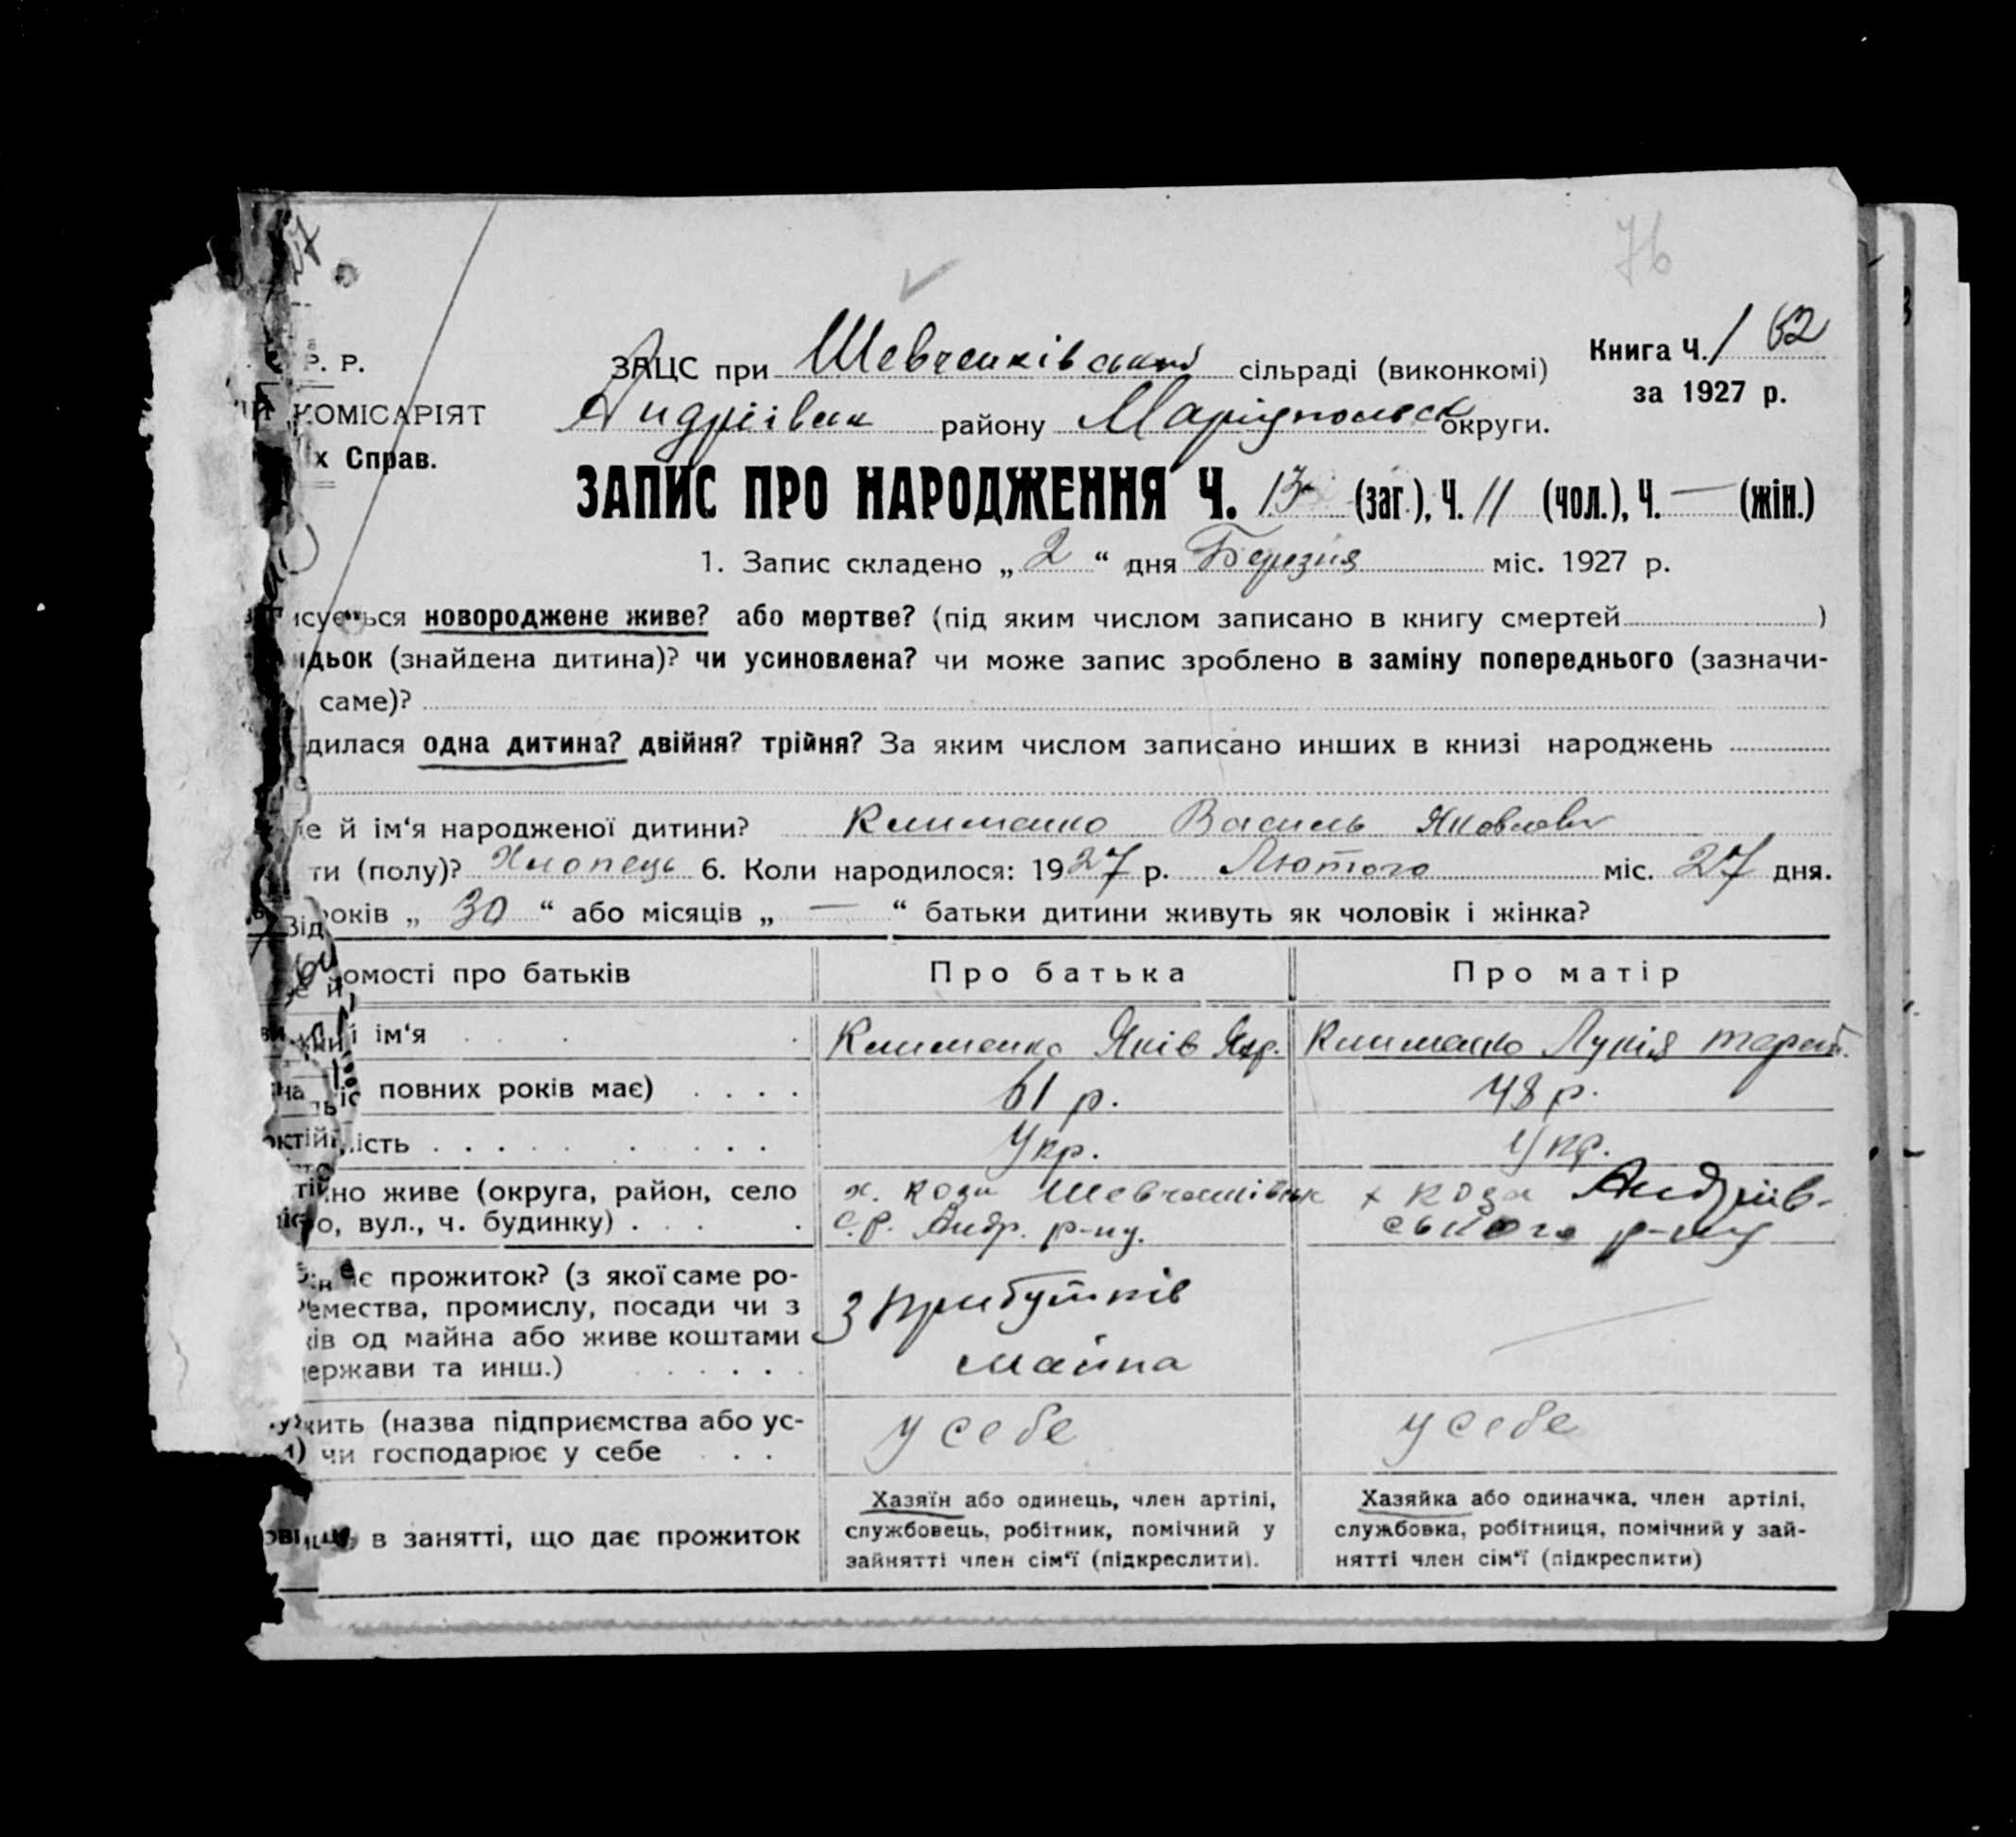 76
Р. Р.
ЗАЦС при Шевченківській сільраді (виконкомі)
Книга Ч. 1 62
за 1927 р.
КОМІСАРІЯТ
Андріївськ району Маріюпольськ округи.
х Справ.
ЗАПИС ПРО НАРОДЖЕННЯ Ч. 13 (заг.), Ч. 11 (чол.), Ч. — (жін.)
1. Запис складено „ 2 “ дня Березня міс. 1927 р.
исується новороджене живе? або мертве? (під яким числом записано в книгу смертей )
идьок (знайдена дитина)? чи усиновлена? чи може запис зроблено в заміну попереднього (зазначи-
саме)?
дилася одна дитина? двійня? трійня? За яким числом записано инших в книзі народжень
е й ім‘я народженої дитини? Клименко Василь Яковлович
ти (полу)? Хлопець 6. Коли народилося: 1927 р. Лютого міс. 27 дня.
Від років „ 30 “ або місяців „ — “ батьки дитини живуть як чоловік і жінка?
омості про батьків Про батька Про матір
й ім‘я Клименко Яків Клименко Лукія
повних років має) 61 р. 48 р.
ість Укр. Укр.
но живе (округа, район, село х. Роза Шевченківськ х Роза Андріїв-
о, вул., ч. будинку) с.р. Андр. р-ну. ського р-ну
ає прожиток? (з якої саме ро-
емества, промислу, посади чи з З прибутків
ків од майна або живе коштами
ержави та инш.) майна
жить (назва підприємства або ус-
чи господарює у себе у себе у себе
в занятті, що дає прожиток
Хазяїн або одинець, член артілі,
службовець, робітник, помічний у
зайнятті член сім‘ї (підкреслити).
Хазяйка або одиначка, член артілі,
службовка, робітниця, помічний у зай-
нятті член сім‘ї (підкреслити)